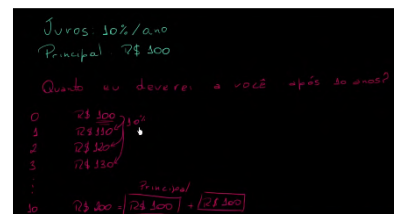 Juros: 10%/ano
Principal: R$ 100
Quanto eu deverei a você após 10 anos?
0 R$ 100
10%
1 R$ 110
2 R$ 120
3 R$ 130
Principal
10 R$ 200 = R$ 100 + R$ 100